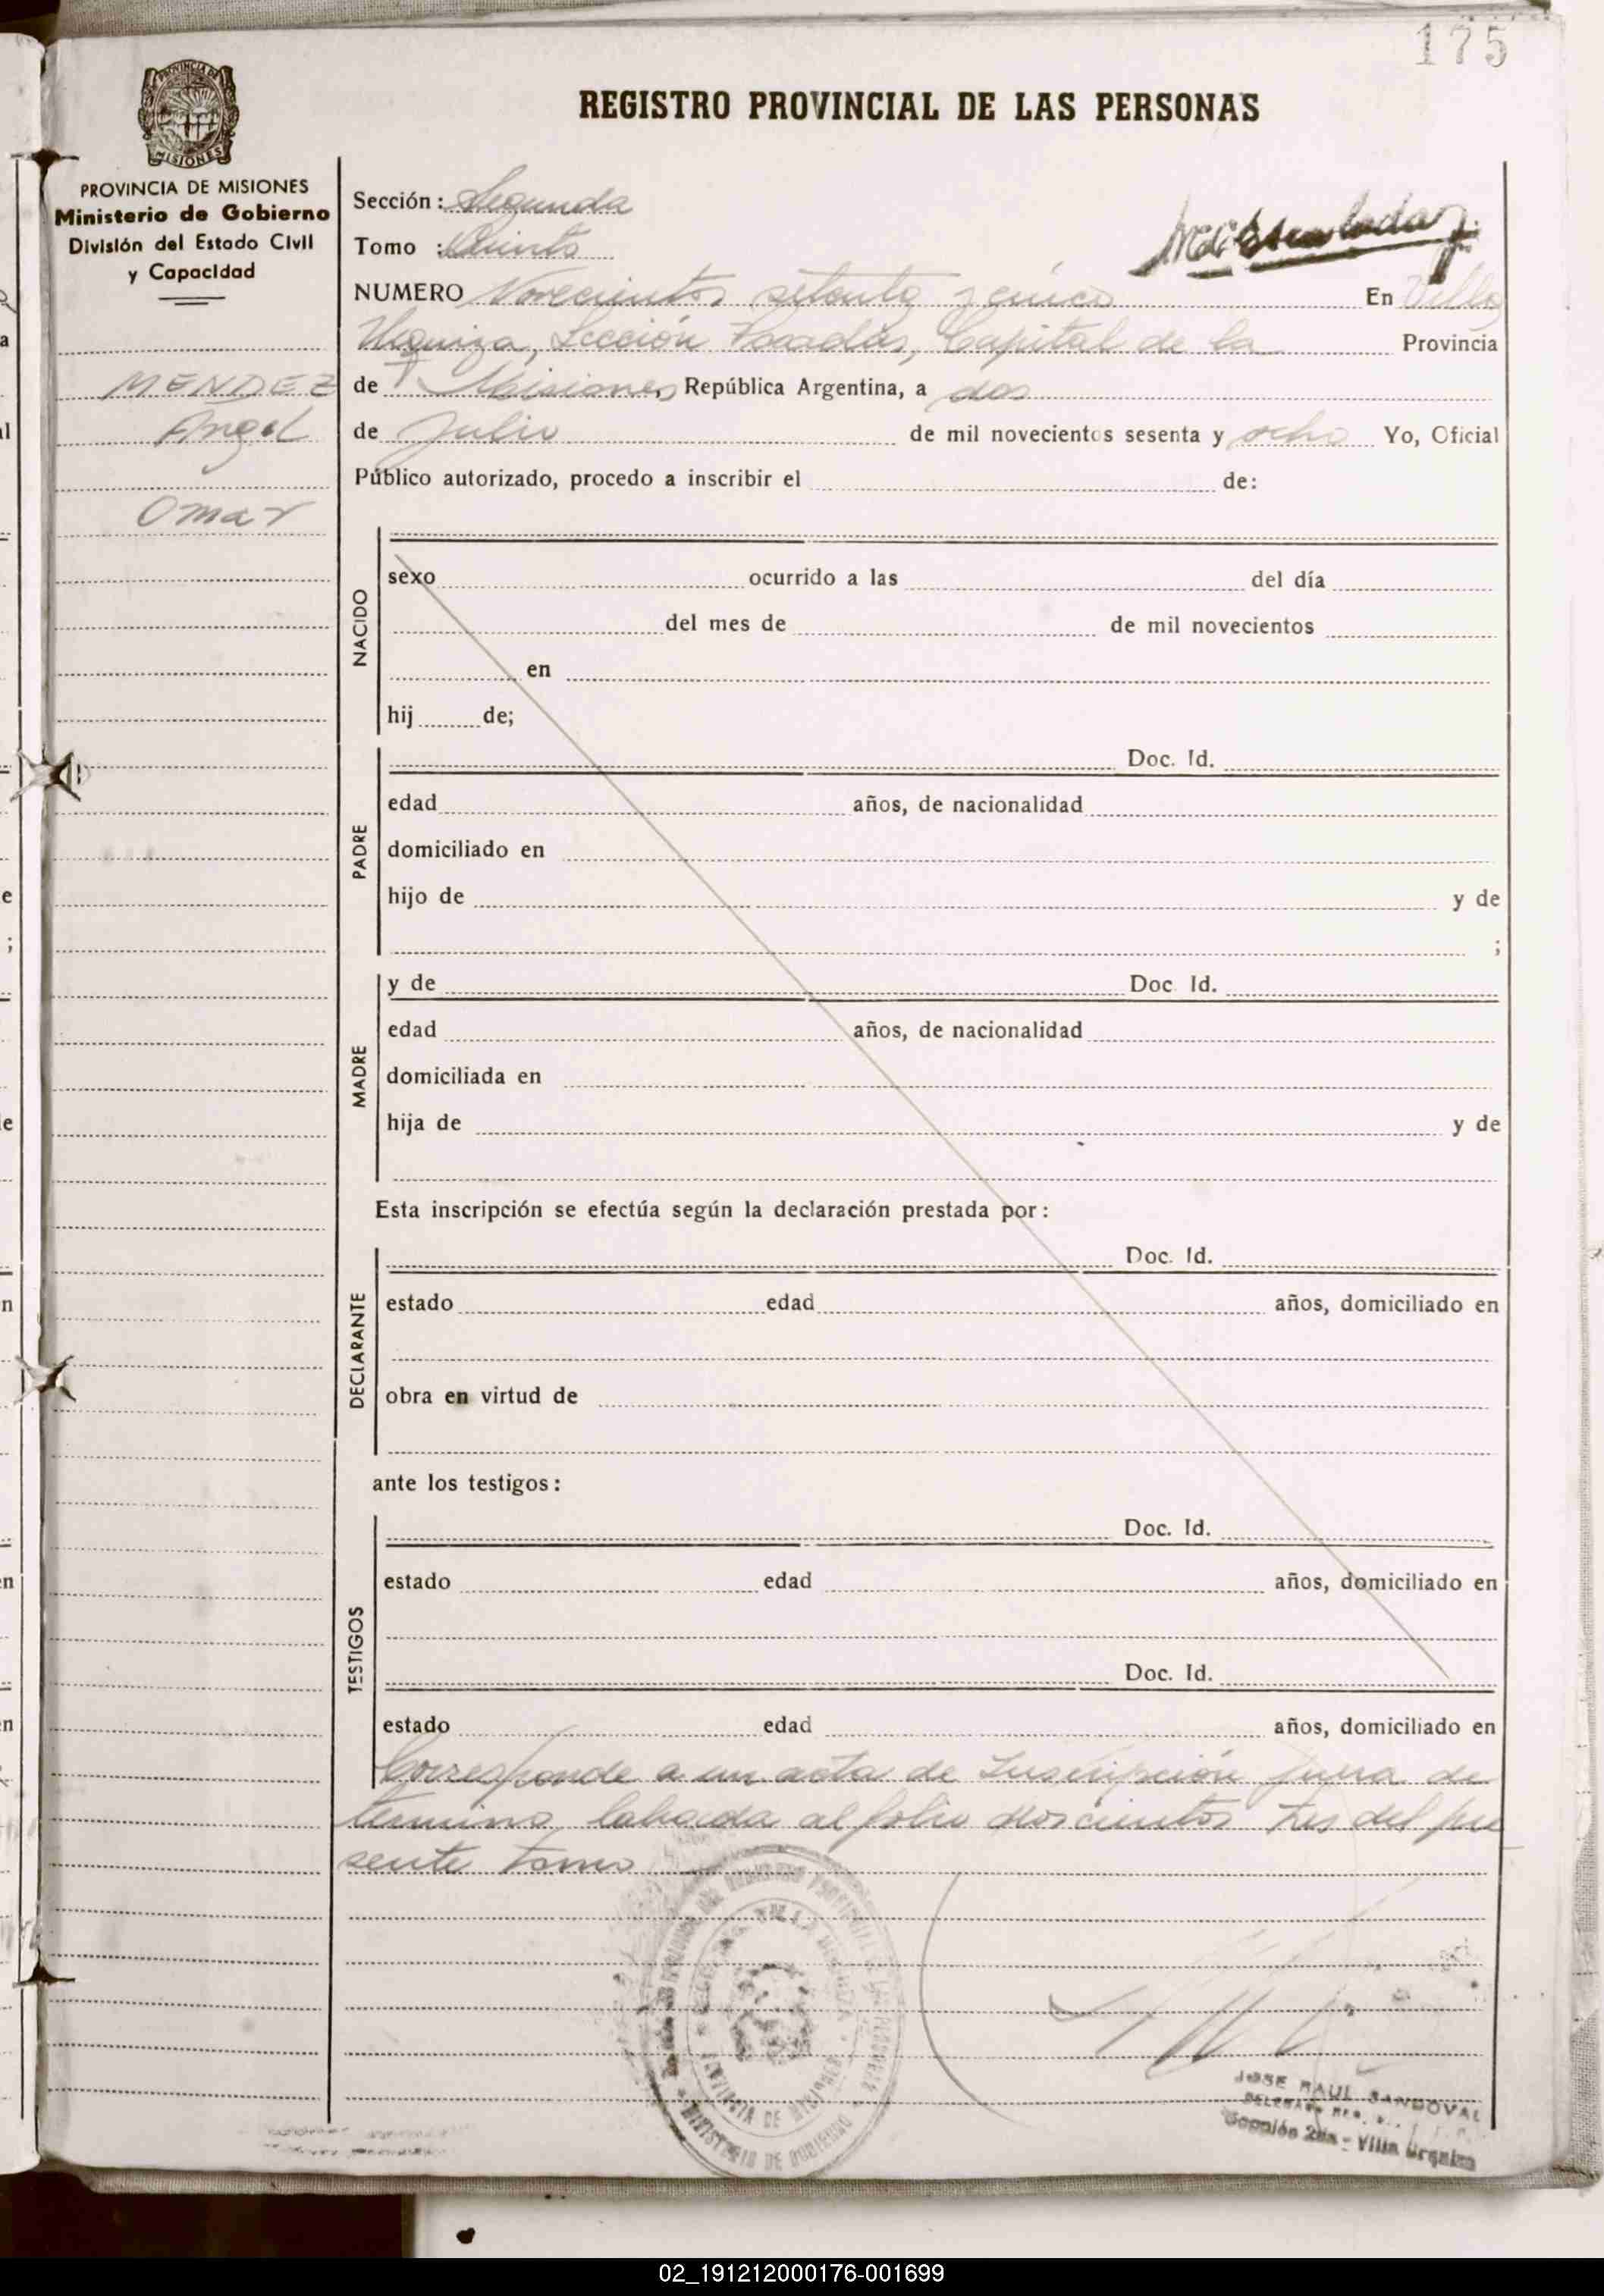 175
PROVINCIA DE MISIONES
REGISTRO PROVINCIAL DE LAS PERSONAS
PROVINCIA DE MISIONES
Ministerio de Gobierno
División del Estado Civil
y Capacidad
MENDEZ
Angel
Omar
Sección: Segunda
Tomo : Quinto
NUMERO Novecientos setenta y cinco En Villa
Urquiza, Sección Posadas, Capital de la Provincia
de Misiones, República Argentina, a dos
de Julio de mil novecientos sesenta y ocho Yo, Oficial
Público autorizado, procedo a inscribir el de:
NACIDO
sexo ocurrido a las del día
del mes de de mil novecientos
en
hij de;
PADRE
Doc. Id.
edad años, de nacionalidad
domiciliado en
hijo de y de
;
MADRE
y de Doc. Id.
edad años, de nacionalidad
domiciliada en
hija de y de
Esta inscripción se efectúa según la declaración prestada por:
DECLARANTE
Doc. Id.
estado edad años, domiciliado en
obra en virtud de
ante los testigos:
TESTIGOS
Doc. Id.
estado edad años, domiciliado en
Doc. Id.
estado edad años, domiciliado en
Corresponde a un acta de Inscripción fuera de
termino labrada al folio doscientos tres del pre
sente tomo
MINISTERIO DE GOBIERNO
JOSE RAUL SANDOVAL
Sección 2da - Villa Urquiza
02_191212000176-001699